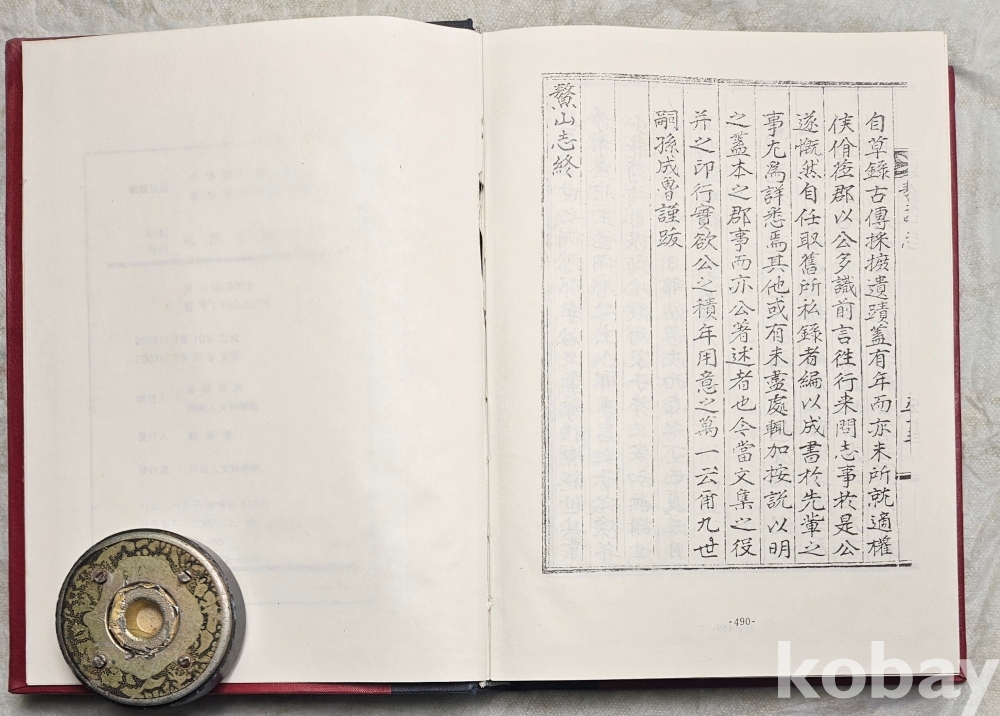 自草錄古傳採摭遺蹟蓋有年而亦未所就適權
侯佾莅郡以公多識前言徃行来問志事於是公
遂慨然自任取舊所私錄者編以成書於先輩之
事尤爲詳悉焉其他或有未盡處輒加按說以明
之蓋本之郡事而亦公著述者也今當文集之役
并之印行實欲公之積年用意之萬一云爾九世
嗣孫成曾謹跋
鰲山志終
-490-
kobay